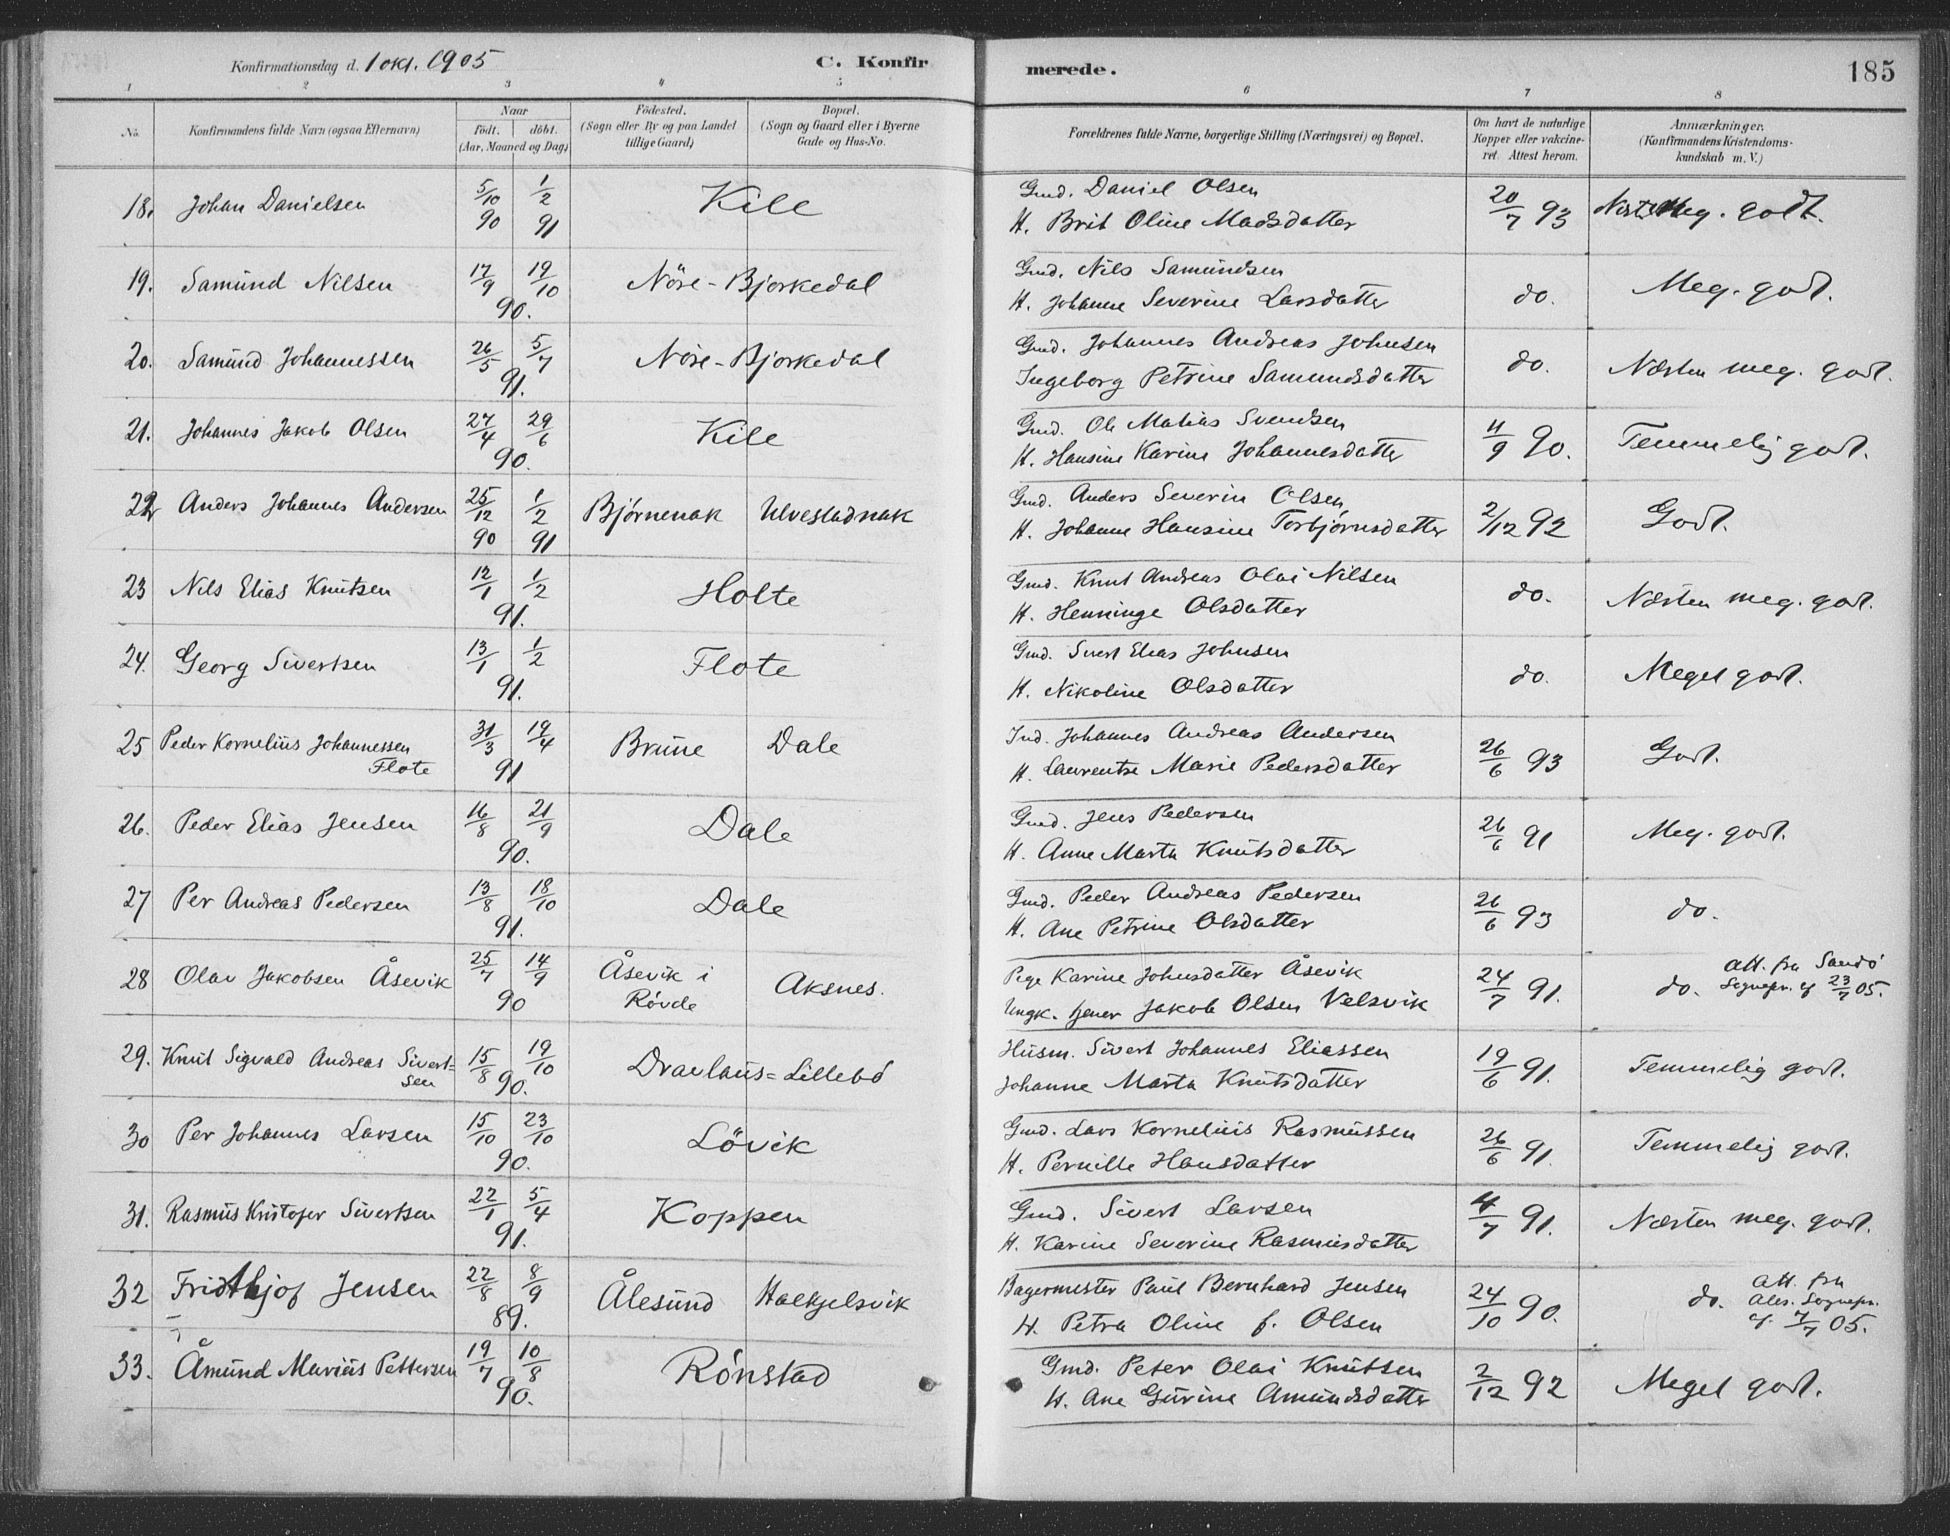 Konfirmationsdag d. 1 okt. 1905 C. Konfirmerede. 185
1 2 3 4 5 6 7 8
No. Konfirmandens fulde Navn (ogsaa Efternavn) Naar födt. döbt. (Aar, Maaned og Dag) Födested. (Sogn eller By og paa Landet tillige Gaard) Bopæl. (Sogn og Gaard eller i Byerne Gade og Hus-No. Forældrenes fulde Navne, borgerlige Stilling (Næringsvei) og Bopæl. Om havt de naturlige Kopper eller vakcineret. Attest herom. Anmærkninger. (Konfirmandens Kristendomskundskab m. V.)
18. Johan Danielsen 5/10 90 1/2 91 Kile Gmd. Daniel Olsen
H. Brit Oline Madsdatter 20/7 93 Næst. Meg. godt.
19. Samund Nilsen 17/9 19/10 90. Nöre-Bjorkedal Gmd. Nils Samundsen
H. Johanne Severine Larsdatter do. Meg. godt.
20. Samund Johannessen 26/5 5/7 91. Nöre-Bjorkedal Gmd. Johannes Andreas Johnsen
Ingeborg Petrine Samundsdatter do. Næsten meg. godt.
21. Johannes Jakob Olsen 27/4 29/6 90. Kile Gmd. Ole Matias Svendsen
H. Hansine Karine Johannesdatter 11/9 90. Temmelig godt.
22 Anders Johannes Andersen 25/12 90 1/2 91 Bjørnenak Ulvestadnak Gmd. Anders Severin Olsen
H. Johanne Hansine Torbjørnsdatter 2/12 92 Godt.
23 Nils Elias Knutsen 12/1 1/2 91. Holte Gmd. Knut Andreas Olai Nilsen
H. Henninge Olsdatter do. Næsten meg. godt.
24. Georg Sivertsen 13/1 1/2 91. Flote Gmd. Sivert Elias Johnsen
H. Nikoline Olsdatter do. Meget godt.
25 Peder Kornelius Johannessen Flote 31/3 19/4 91 Brune Dale Ind. Johannes Andreas Andersen
H. Laurentse Marie Pedersdatter 26/6 93 Godt.
26. Peder Elias Jensen 16/8 21/9 90. Dale Gmd. Jens Pedersen
H. Anne Marta Knutsdatter 26/6 91 Meg. godt.
27 Per Andreas Pedersen 13/8 18/10 91. Dale Gmd. Peder Andreas Pedersen
H. Ane Petrine Olsdatter 26/6 93 do.
28 Olav Jakobsen Åsevik 25/7 14/9 90 Åsevik i Røvde Aksnes. Pige Karine Johnsdatter Åsevik
Ungk. tjener Jakob Olsen Velsvik 24/7 91. do. att. fra Sandö Sognepr. af 23/7 05.
29. Knut Sigvald Andreas Sivertsen 15/8 19/10 90. Dravlaus=Lillebö Husm. Sivert Johannes Eliassen
Johanne Marta Knutsdatter 19/6 91. Temmelig godt.
30 Per Johannes Larsen 15/10 23/10 90. Lövik Gmd. Lars Kornelius Rasmussen
H. Pernille Hansdatter 26/6 91. Temmelig godt.
31. Rasmus Kristofer Sivertsen 22/1 5/4 91. Koppen Gmd. Sivert Larsen
H. Karine Severine Rasmusdatter 4/7 91. Næsten meg. godt.
32 Fridthjof Jensen 22/8 8/9 89. Ålesund Halkjelsvik Bagermester Paul Bernhard Jensen
H. Petra Oline f. Olsen 24/10 90. do. att. fra Ales. Sognepr. af 4/7 05.
33. Åmund Marius Pettersen 19/7 10/8 90. Rønstad Gmd. Peter Olai Knutsen
H. Ane Gurine Amundsdatter 2/12 92 Meget godt.